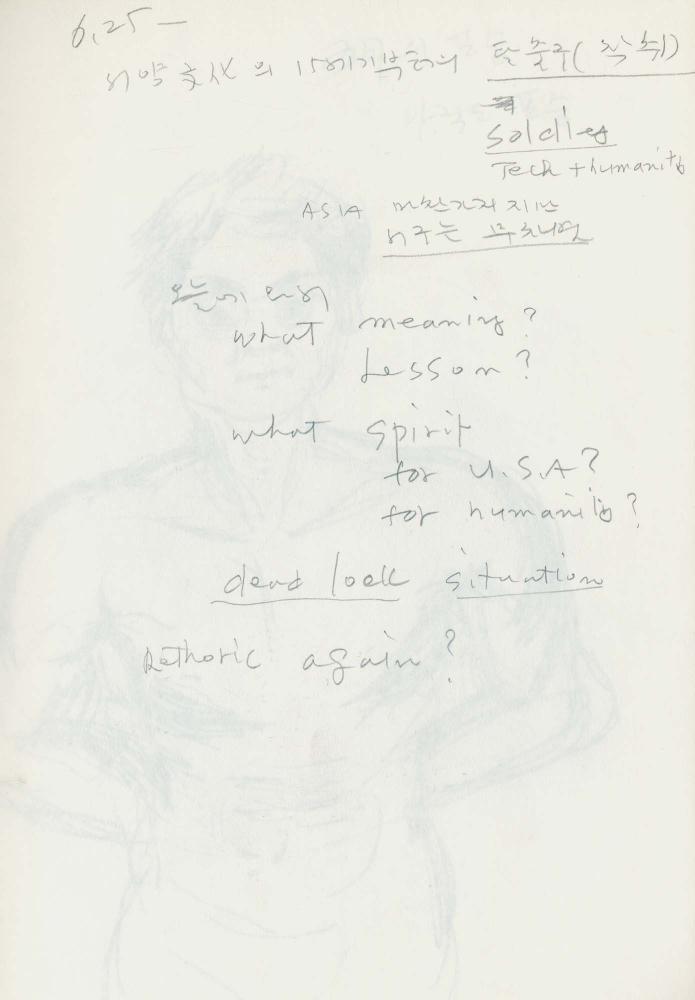 6.25 —
서양 문화 의 15세기부터의 탈출구 (착취)
soldies
Tech + humanity
ASIA 마찬가지 지만
서구는
오늘에 와서
what meaning?
Lesson?
what spirit
for U.S.A?
for humanity?
dead lock situation
Rethoric again?